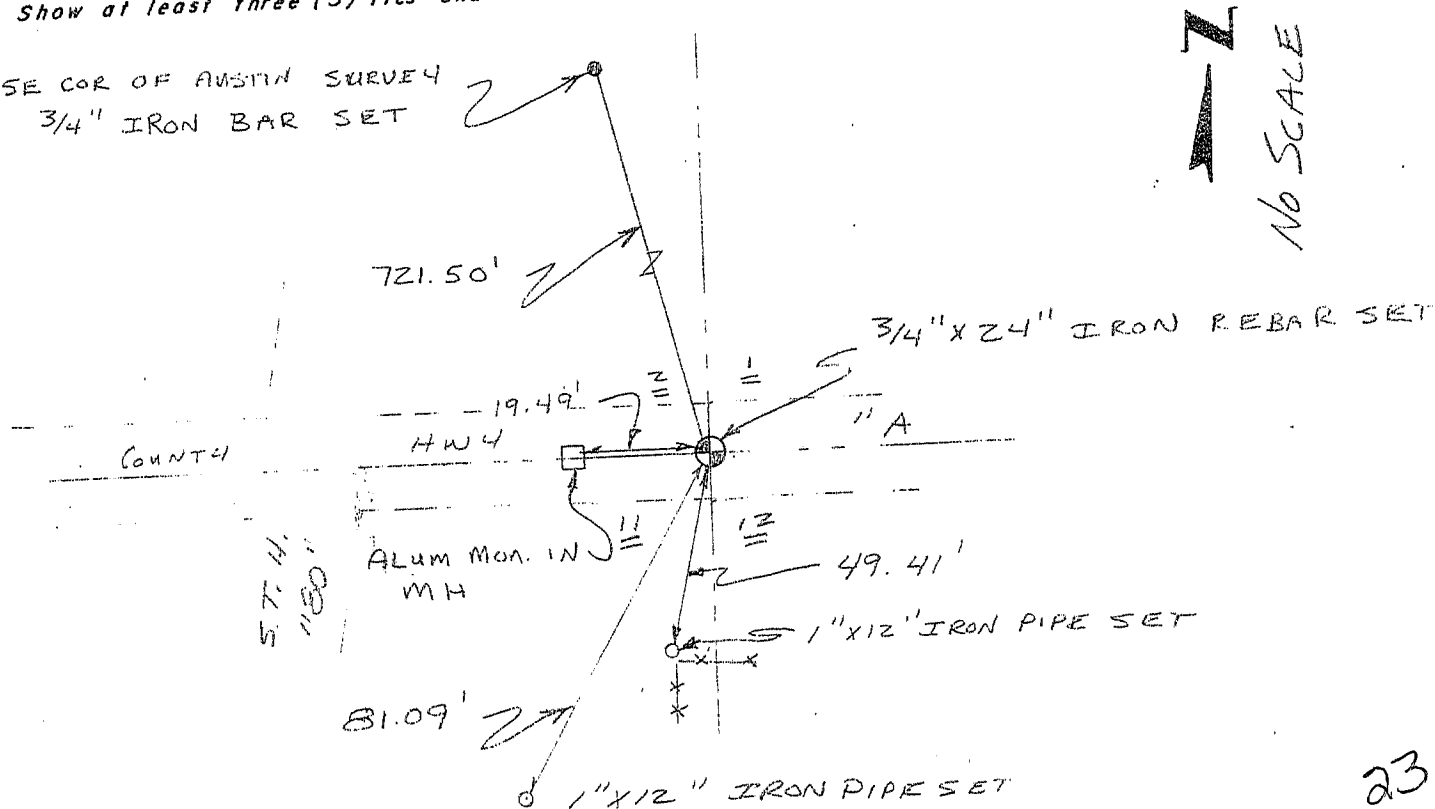 Show at least Three (3) Ties
SE COR OF AUSTIN SURVEY
3/4" IRON BAR SET
N
NO SCALE
721.50'
3/4" X 24" IRON REBAR SET
2
1
19.49'
COUNTY
HWY
"A
11
12
ALUM MON. IN
MH
S.T.H.
"80"
49.41'
1"X12" IRON PIPE SET
81.09'
1"X12" IRON PIPE SET
23